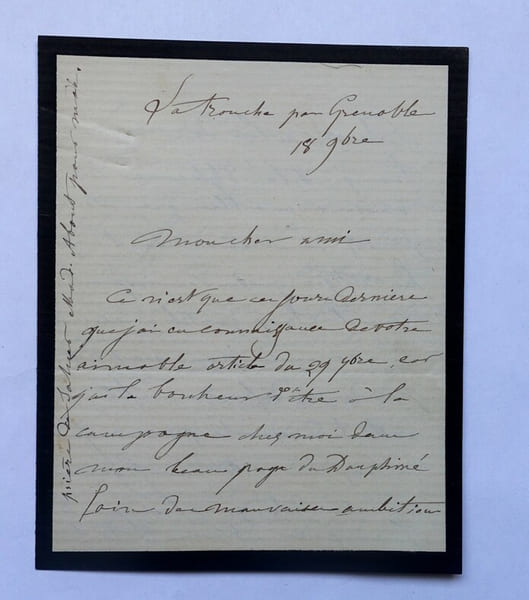 La Tronche par Grenoble
18 9bre
Mon cher ami
Ce n'est que ces jours derniers
que j'ai eu connaissance de votre
aimable article du 29 9bre, car
j'ai le bonheur d'être à la
campagne chez moi dans
mon beau pays du Dauphiné
loin des mauvaises ambitions
prière de saluer Mad. About pour moi.